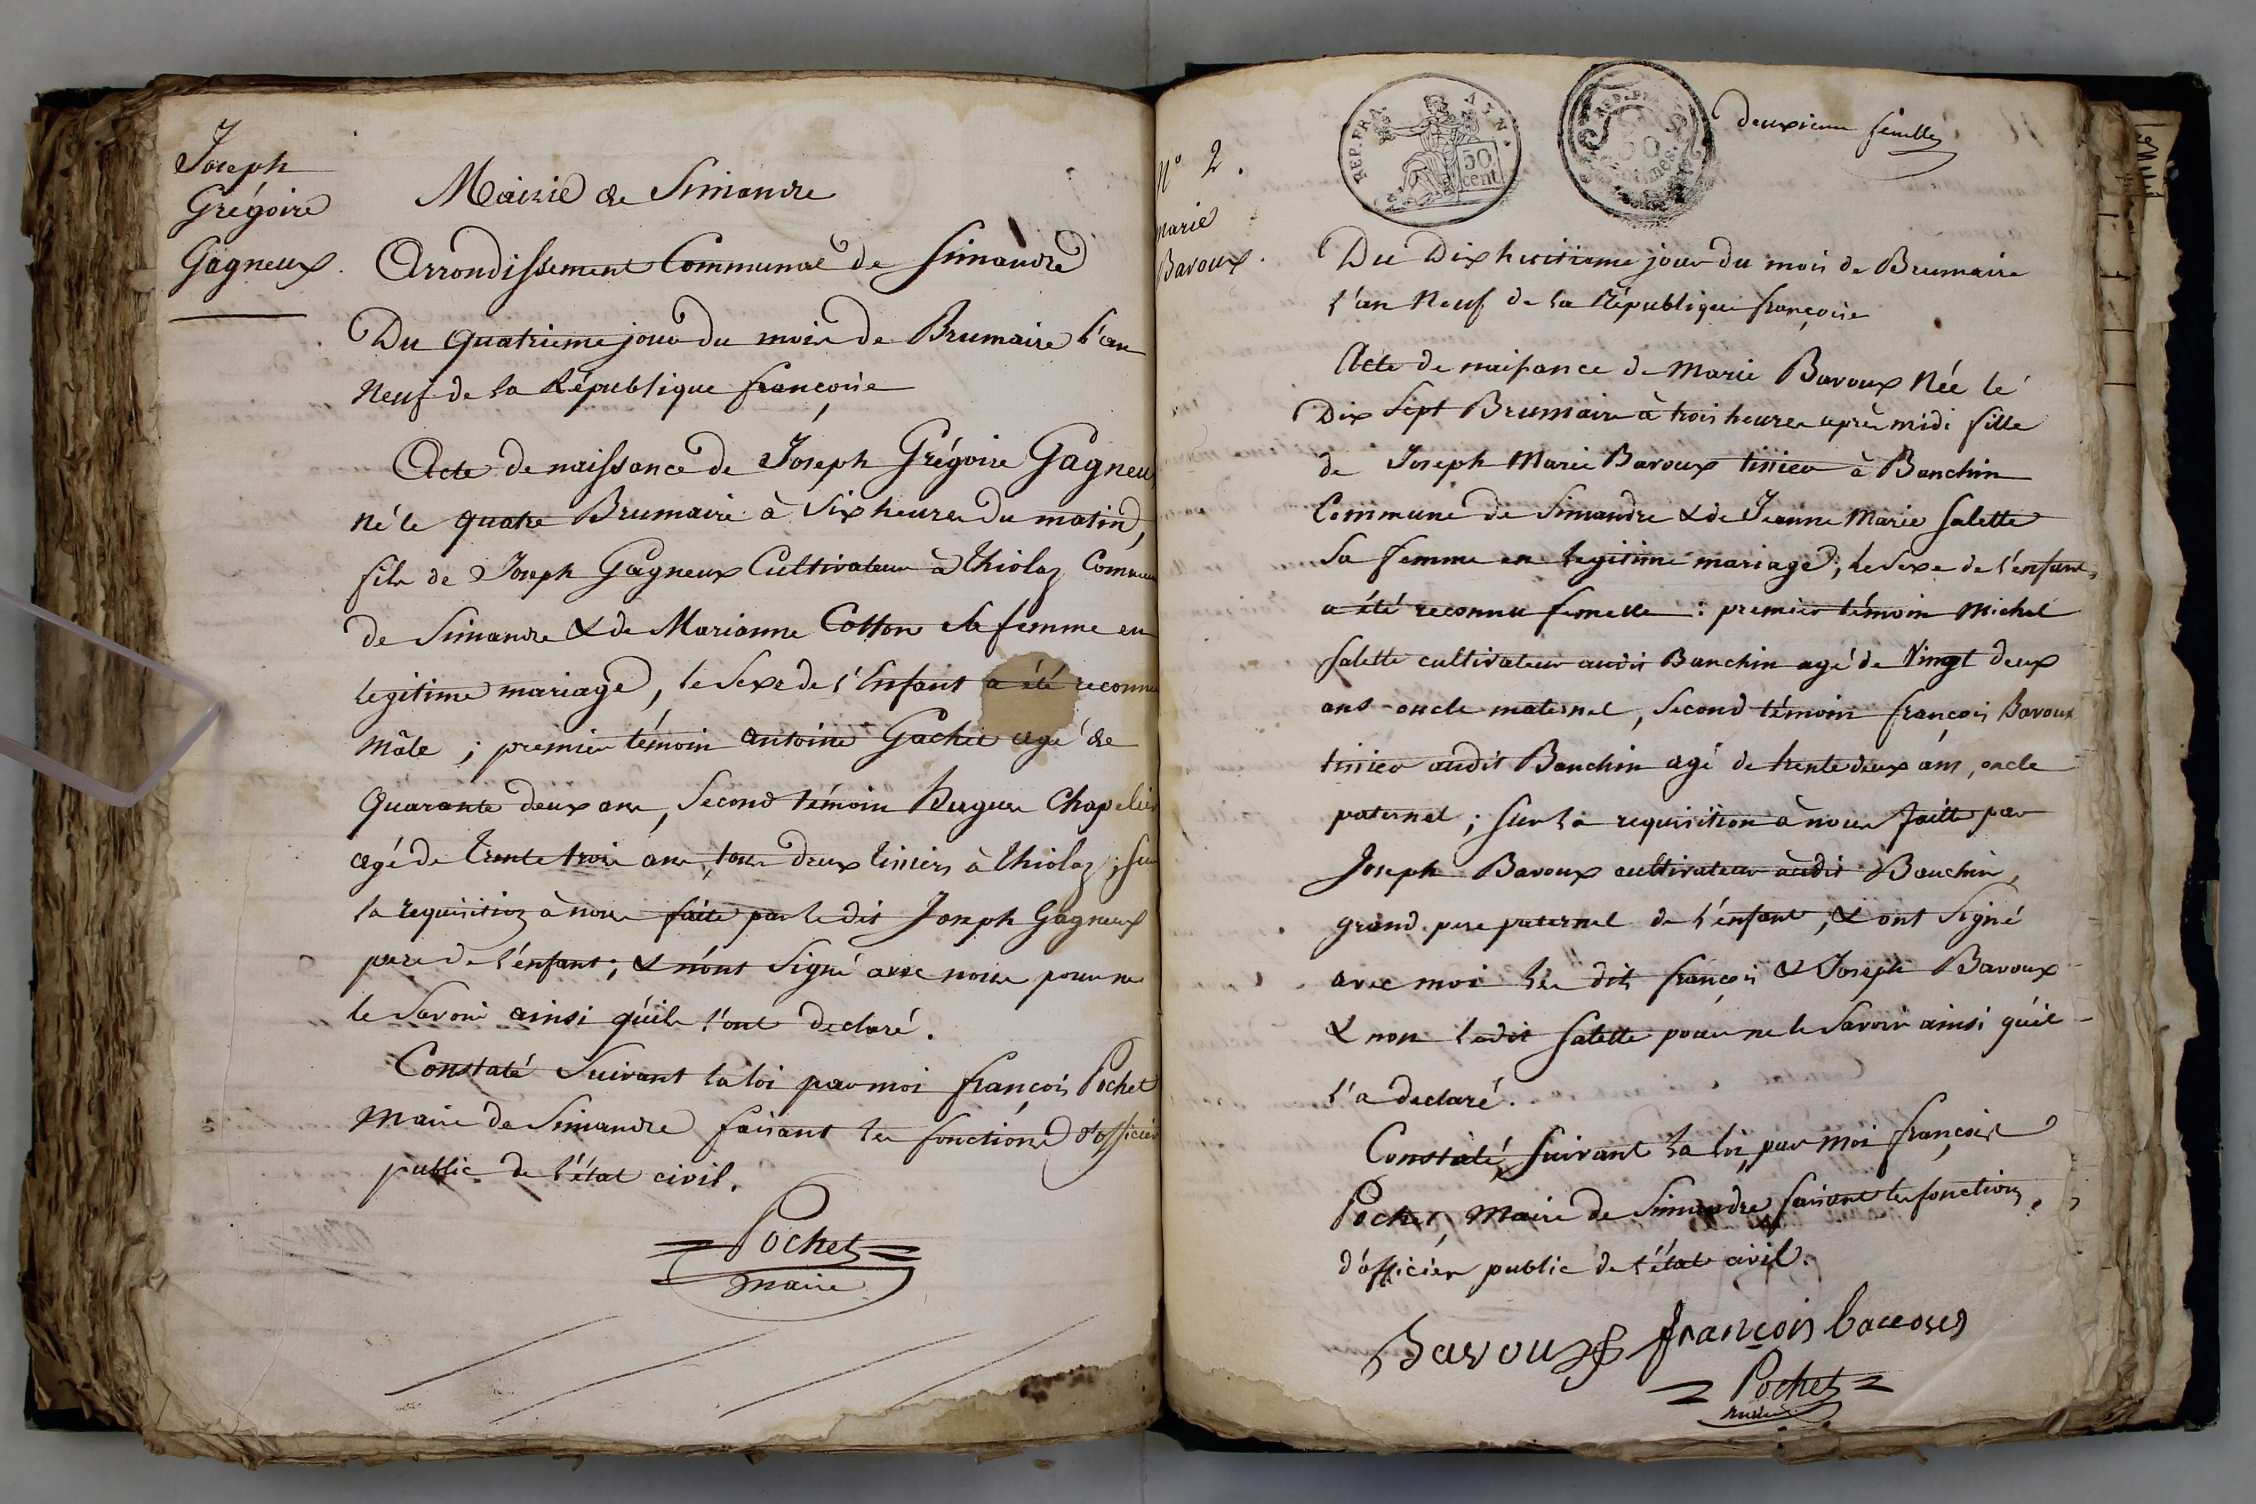 Joseph
Grégoire
Gagneux.
Mairie de Simandre
Arrondissement Communal de Simandre
Du quatrieme jour du mois de Brumaire l'an
Neuf de la République françoise
Acte de naissance de Joseph Grégoire Gagneux
né le quatre Brumaire à Six heures du matin,
fils de Joseph Gagneux Cultivateur à Thiolaz Commune
de Simandre & de Marianne Cotton Sa femme en
legitime mariage, le Sexe de l'Enfant a été reconnu
Mâle ; premier témoin antoine Gachet agé de
Quarante deux ans, Second témoin Hugues Chapelier
agé de trente trois ans, tous deux tissiers à Thiolaz ; sur
la requisition à nous faite par le dit Joseph Gagneux
pere de l'enfant ; & n'ont Signé avec nous pour ne
le Savoir ainsi qu'ils l'ont declaré.
Constaté Suivant la loi par moi françois Pochet
Maire de Simandre faisant les fonctions d'officier
public de l'état civil.
Pochet
maire
deuxieme feuille
REP. FRA.
AIN.
50
cent
REP.
50
Centimes
N° 2.
Marie
Bavoux.
Du Dix huitieme jour du mois de Brumaire
l'an Neuf de la République françoise
Acte de naissance de Marie Bavoux Née le
Dix Sept Brumaire à trois heures après midi fille
de Joseph Marie Bavoux tissier à Banchin
Commune de Simandre & de Jeanne Marie Salette
Sa femme en legitime mariage ; le Sexe de l'enfant
a été reconnu femelle : premier témoin Michel
Salette cultivateur audit Banchin agé de Vingt deux
ans oncle maternel, Second témoin françois Bavoux
tissier audit Banchin agé de trente deux ans, oncle
paternel ; Sur la requisition à nous faitte par
Joseph Bavoux cultivateur audit Banchin,
grand pere paternel de l'enfant, & ont Signé
avec moi les dits françois & Joseph Bavoux
& non ledit Salette pour ne le Savoir ainsi qu'il
l'a declaré.
Constaté, Suivant la loi, par Moi françois
Pochet, Maire de Simandre faisant les fonctions
d'officier public de l'état civil.
Bavoux françois bavoux
Pochet
maire